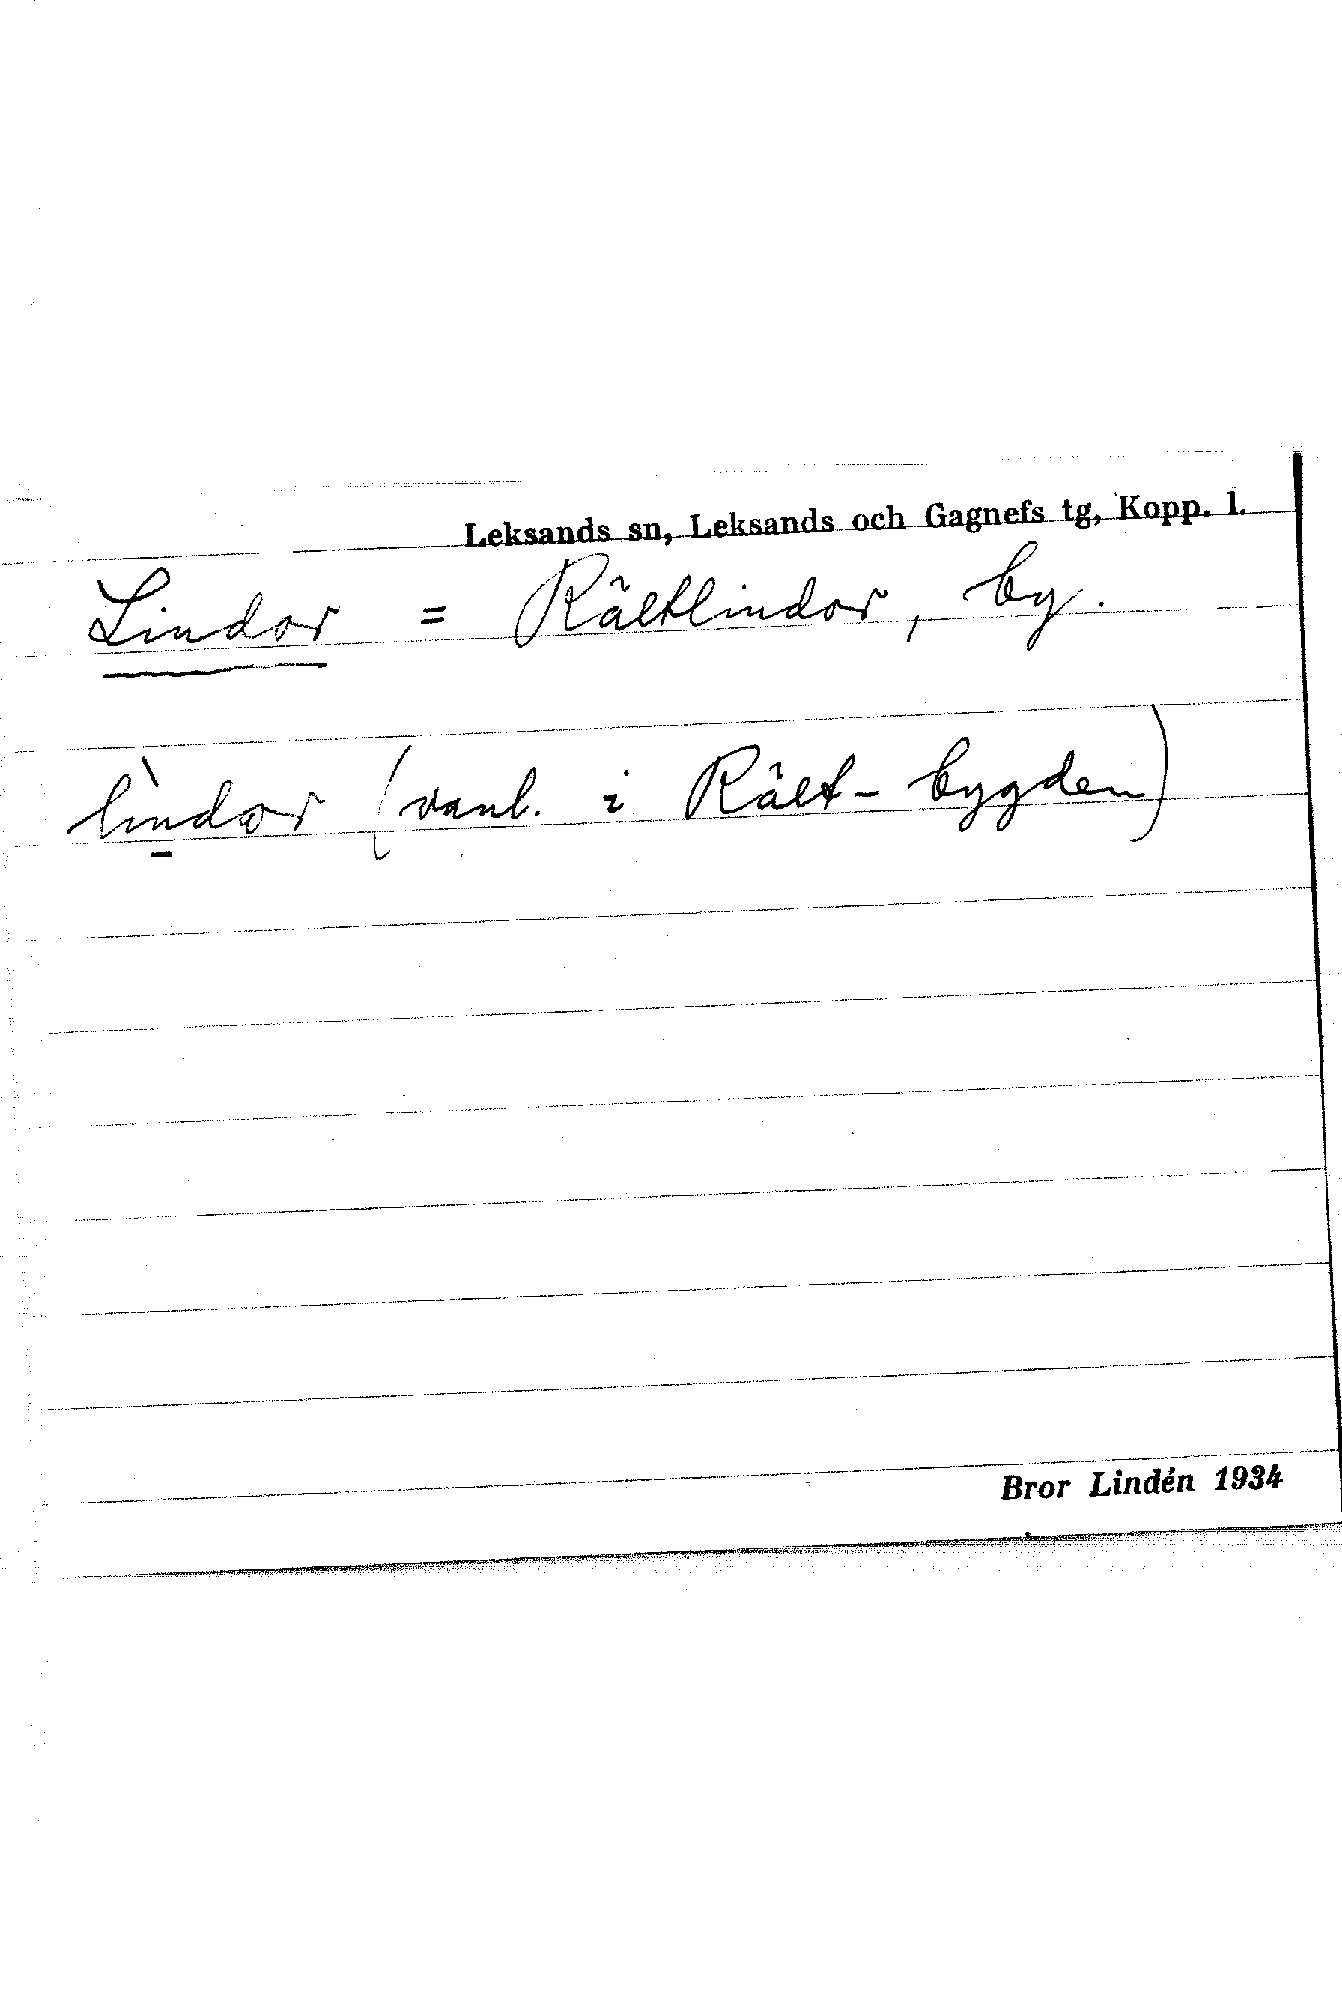 Leksands sn, Leksands och Gagnefs tg, Kopp. l.
Lindor = Rältlindor, by.
lìndor (vanl. i Rält-bygden)
Bror Lindén 1934